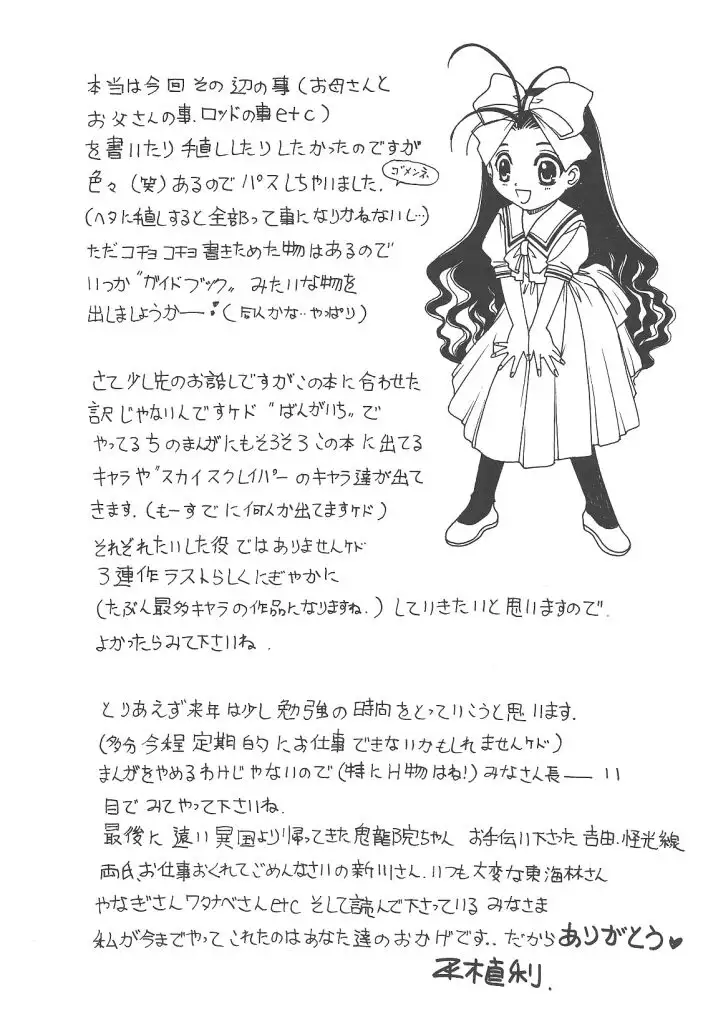 本当は今回その辺の事(お母さんと
お父さんの事、ロッドの事etc)
を書いたり描ししたりしたかったのですが
色々(笑)あるのでパスしちゃいました.
ゴメンネ
(ヘタに描しすると全部って事になりかねないし…)
ただコチョコチョ書きためた物はあるので
いつか“ガイドブック〟みたいな物を
出しましょうかー・(同人かな..やっぱり)
さて少し先のお話しですがこの本に合わせた
訳じゃないんですケド“ばんがいち〟で
やってるちのまんがにもそろそろこの本に出てる
キャラや“スカイスクレイパーのキャラ達が出て
きます.(もーすでに何人か出てますケド)
それぞれたいした役ではありませんケド
3連作ラストらしくにぎやかに
(たぶん最多キャラの作品になりますね.)していきたいと思いますので.
よかったらみて下さいね.
とりあえず来年は少し勉強の時間をとっていこうと思います.
(多分今程定期的にお仕事できないかもしれませんケド)
まんがをやめるわけじゃないので(特にH物はね!)みなさん長——い
目でみてやって下さいね.
最後に遠い異国より帰ってきた鬼龍院ちゃん お手伝い下さった吉田.怪光線
両氏、お仕事おくれてごめんなさいの新川さん.いつも大変な東海林さん
やなぎさんワタナベさんetc そして読んで下さっているみなさま
私が今までやってこれたのはあなた達のおかげです..だからありがとう♥
平木直利.